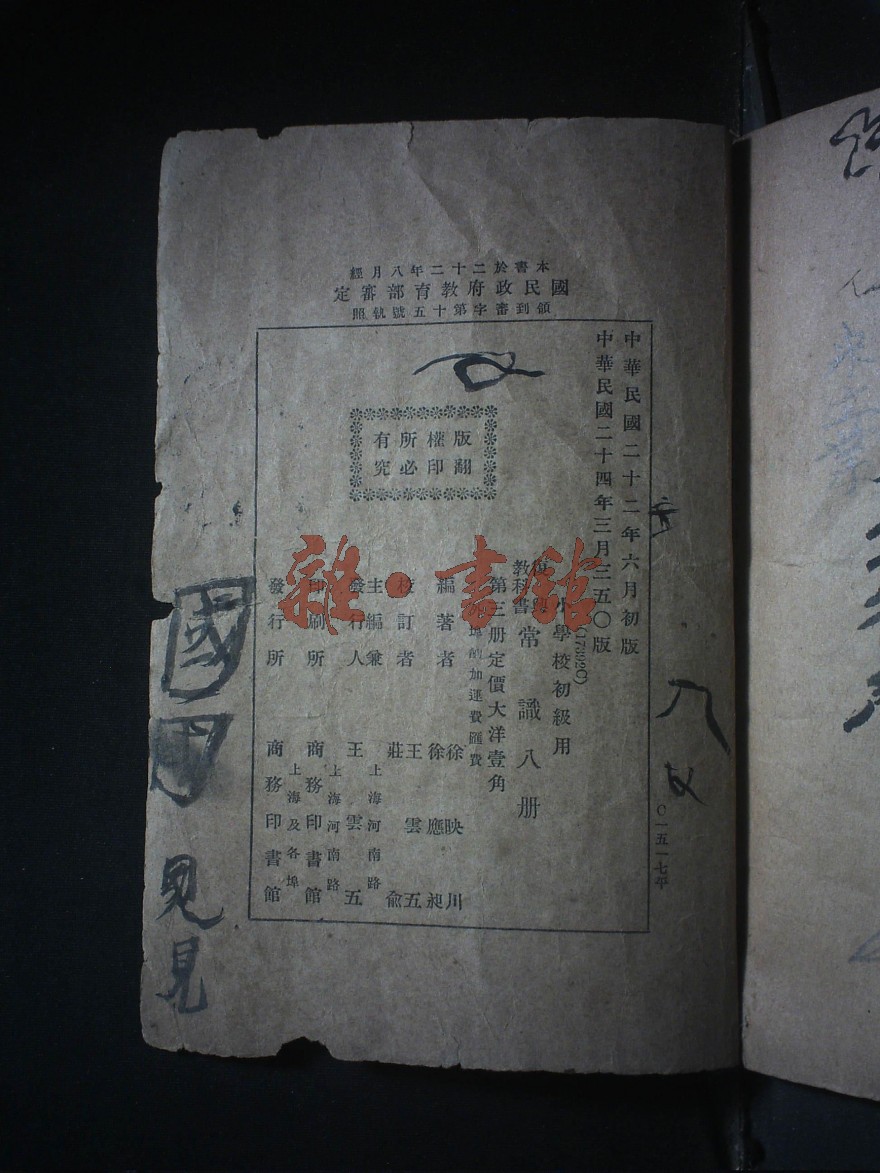 本書於二十二年八月經
國民政府教育部審定
領到審字第十五號執照
中華民國二十二年六月初版
中華民國二十四年三月三五〇版
小學校初級用
教科書 常識八册
第三册定價大洋壹角
埠酌加運費匯費
版權所有
翻印必究
編著者 徐映川 徐應昶
校訂者 王雲五 莊俞
主編兼發行人 王雲五
上海河南路
印刷所 商務印書館
上海河南路
發行所 商務印書館
上海及各埠
〇一五一七平
雜·書館
國
見
見